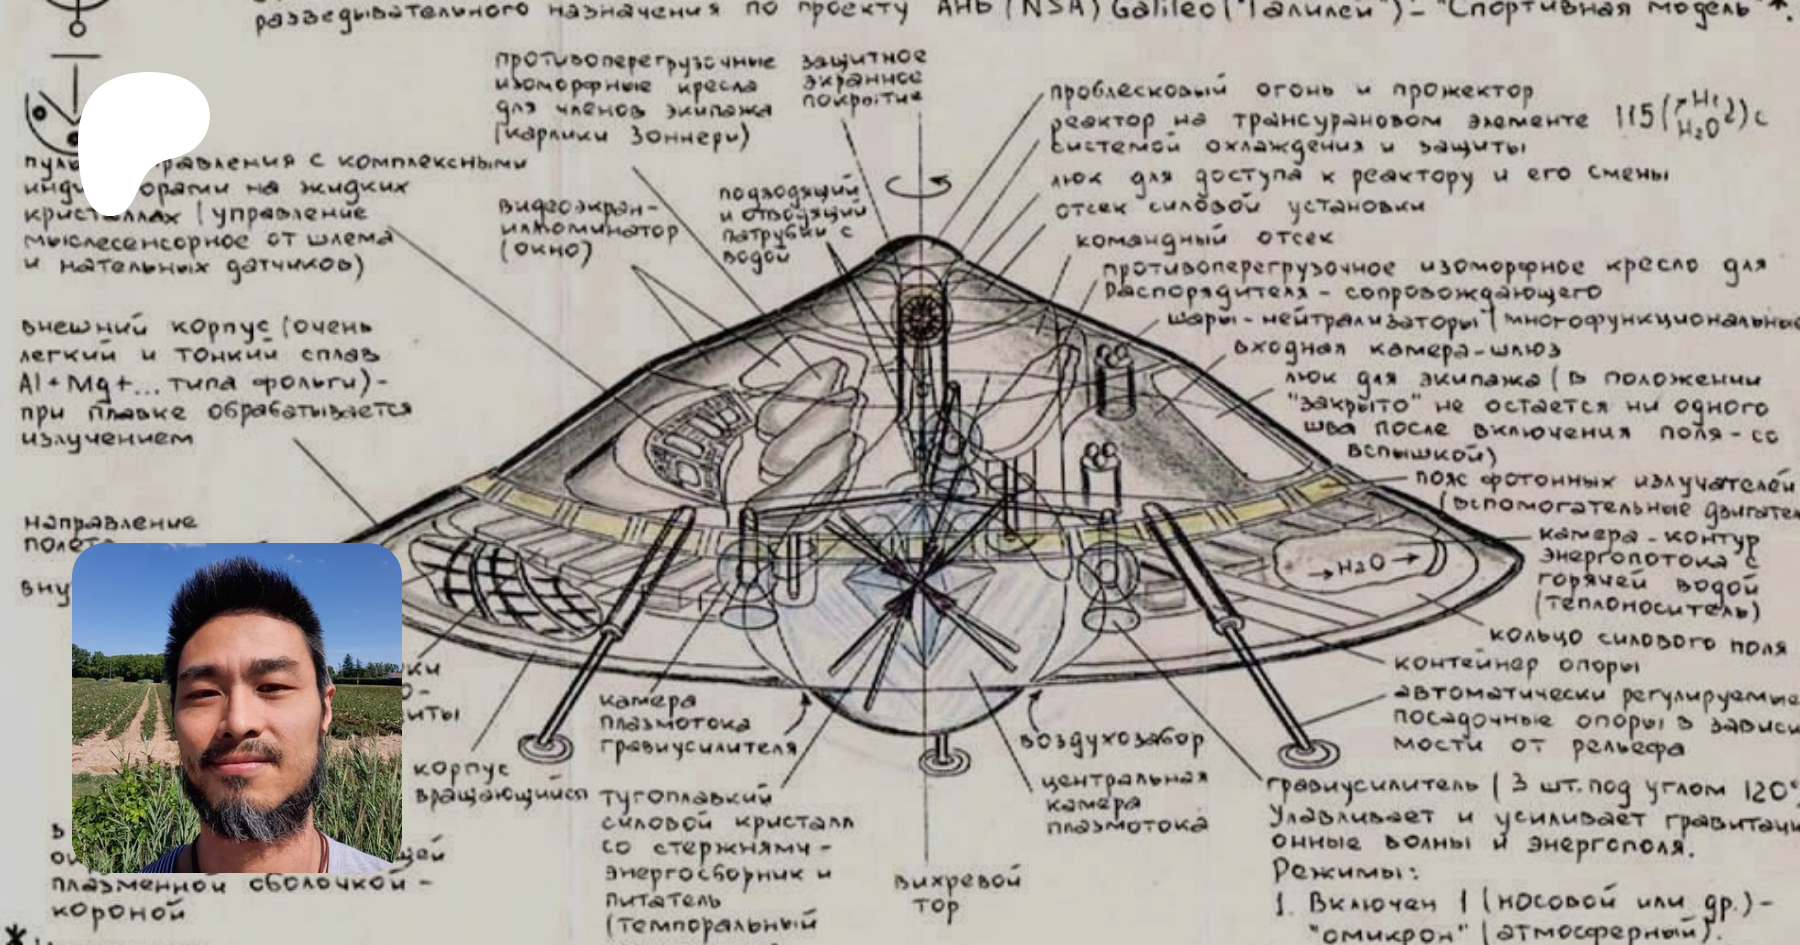 разведывательного назначения по проекту АНБ (NSA) Galileo ("Галилей") - "Спортивная модель"*.
противоперегрузочные
изоморфные кресла
для членов экипажа
(карлики Зоннери)
защитное
экранное
покрытие
проблесковый огонь и прожектор
реактор на трансурановом элементе 115 с
системой охлаждения и защиты
люк для доступа к реактору и его смены
отсек силовой установки
командный отсек
противоперегрузочное изоморфное кресло для
Распорядителя - сопровождающего
шары-нейтрализаторы (многофункциональные
входная камера-шлюз
люк для экипажа (в положении
"закрыто" не остается ни одного
шва после включения поля - со
вспышкой)
пояс фотонных излучателей
(вспомогательные
камера-контур
энергопотока с
горячей водой
(теплоноситель)
→H₂O→
кольцо силового поля
контейнер опоры
автоматически регулируемые
посадочные опоры в зависи
мости от рельефа
гравиусилитель (3 шт. под углом 120°
Улавливает и усиливает гравитаци
онные волны и энергополя.
Режимы:
1. Включен 1 (носовой или др.) -
"омикрон" (атмосферный).
с комплексными
на жидких
кристаллах (управление
мыслесенсорное от шлема
и нательных датчиков)
видеоэкран-
иллюминатор
(окно)
подводящий
и отводящий
патрубки с
водой
внешний корпус (очень
легкий и тонкий сплав
Al+Mg+... типа фольги) -
при плавке обрабатывается
излучением
направление
полета
корпус
вращающийся
камера
плазмотока
гравиусилителя
тугоплавкий
силовой кристалл
со стержнями -
энергосборник и
питатель
(темпоральный
вихревой
тор
воздухозабор
центральная
камера
плазмотока
плазменной оболочкой -
короной